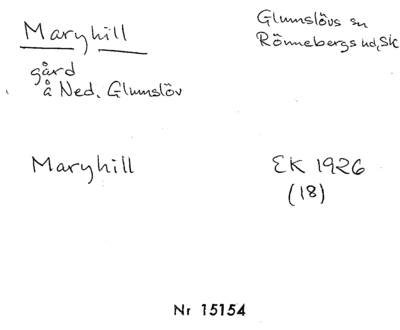 Maryhill
Glumslövs sn
Rönnebergs hd, Sk
gård
å Ned. Glumslöv
Maryhill
EK 1926
(18)
Nr 15154